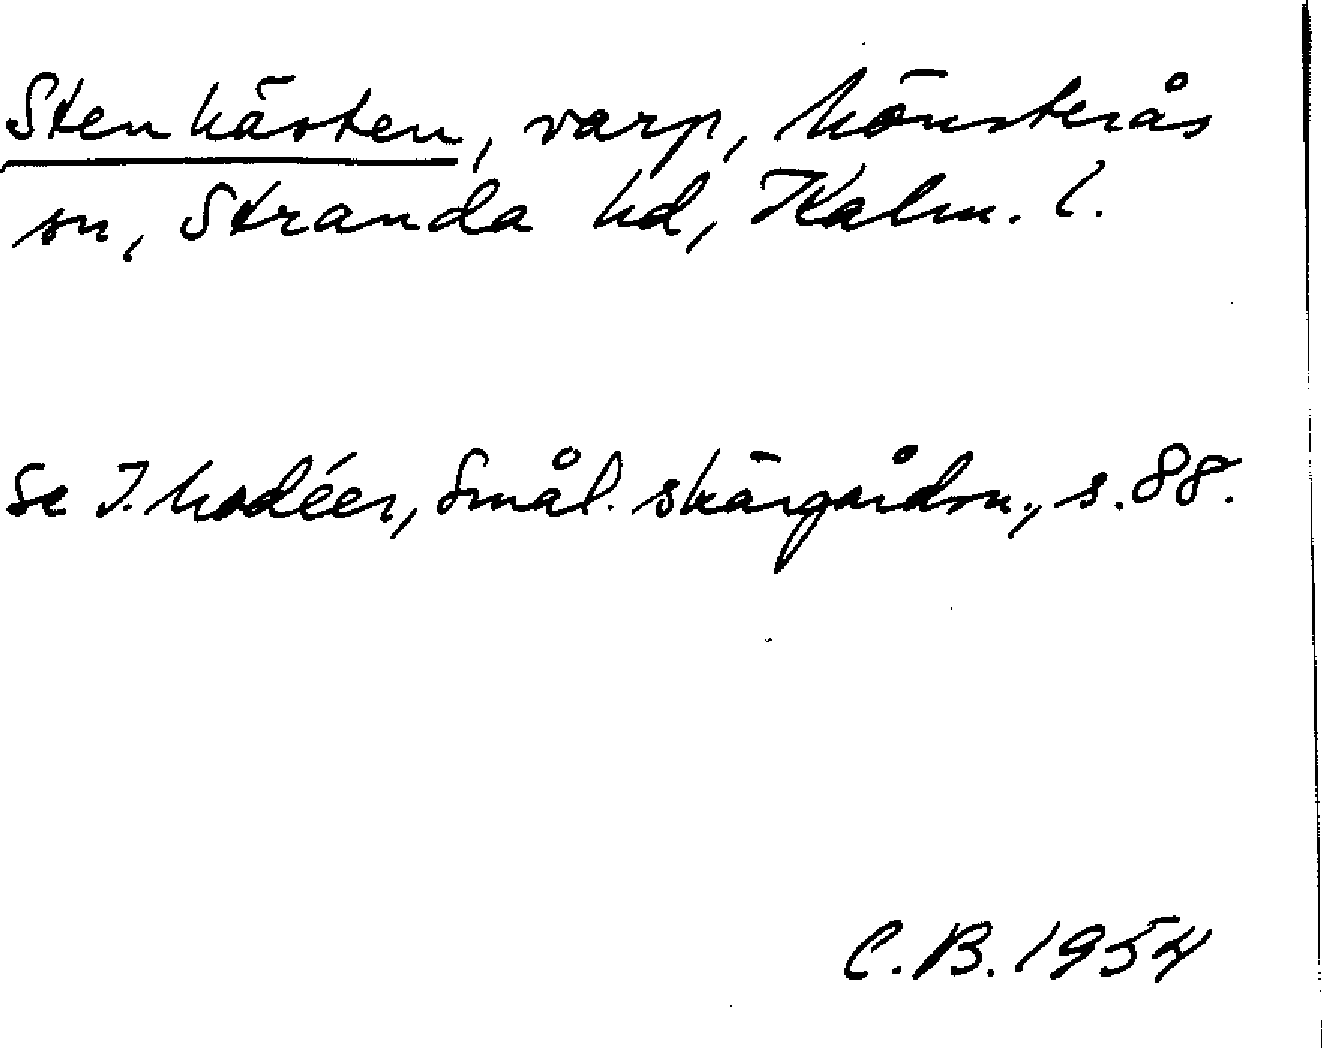 Stenhästen, varp, Mönsterås
sn, Stranda hd, Kalm. l.
Se I. Modéer, Smål. skärgårdsn., s. 88.
C.B. 1954